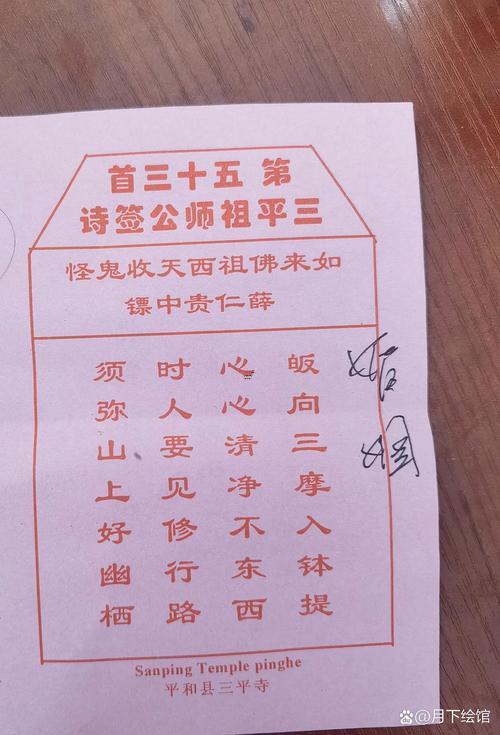 第五十三首
三平祖师公签诗
如来佛祖西天收鬼怪
薛仁贵中镖
皈向三摩入钵提
心心清净不东西
时人要见修行路
须弥山上好幽栖
婚姻
Sanping Temple pinghe
平和县三平寺
百家号@月下绘馆